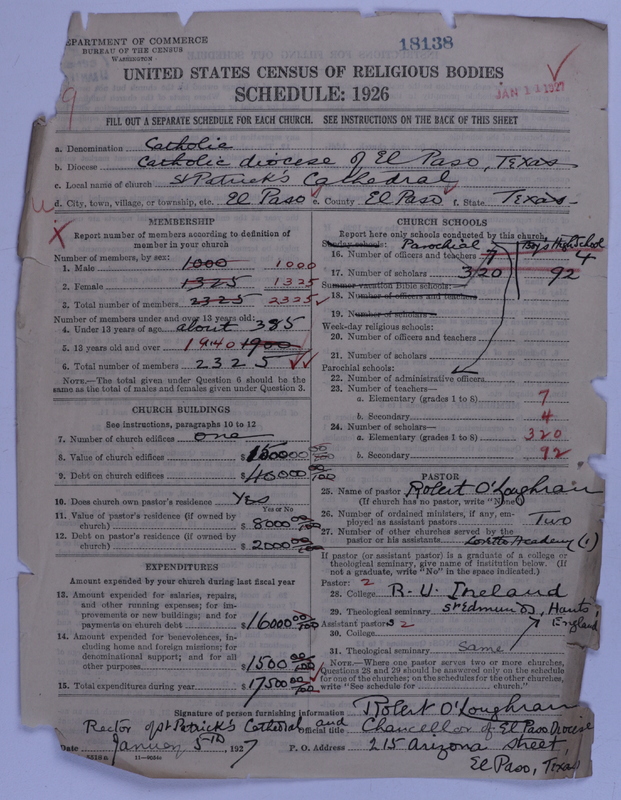 DEPARTMENT OF COMMERCE
BUREAU OF THE CENSUS
WASHINGTON
18138
UNITED STATES CENSUS OF RELIGIOUS BODIES
SCHEDULE: 1926
JAN 11 1927
9
FILL OUT A SEPARATE SCHEDULE FOR EACH CHURCH. SEE INSTRUCTIONS ON THE BACK OF THIS SHEET
a. Denomination Catholic
b. Diocese Catholic diocese of El Paso, Texas
c. Local name of church St Patrick's Cathedral
d. City, town, village, or township, etc. El Paso e. County El Paso f. State Texas
MEMBERSHIP
Report number of members according to definition of member in your church
Number of members, by sex:
1. Male 1000 1000
2. Female 1325 1325
3. Total number of members 2325 2325
Number of members under and over 13 years old:
4. Under 13 years of age about 385
5. 13 years old and over 1940 1900
6. Total number of members 2325
NOTE.—The total given under Question 6 should be the same as the total of males and females given under Question 3.
CHURCH BUILDINGS
See instructions, paragraphs 10 to 12
7. Number of church edifices one
8. Value of church edifices $ 150000 00/100
9. Debt on church edifices $ 40000 00/100
10. Does church own pastor's residence Yes
Yes or No
11. Value of pastor's residence (if owned by church) $ 8000 00/100
12. Debt on pastor's residence (if owned by church) $ 2000 00/100
EXPENDITURES
Amount expended by your church during last fiscal year
13. Amount expended for salaries, repairs, and other running expenses; for improvements or new buildings; and for payments on church debt $ 16000 00/100
14. Amount expended for benevolences, including home and foreign missions; for denominational support; and for all other purposes $ 1500 00/100
15. Total expenditures during year $ 17500 00/100
CHURCH SCHOOLS
Report here only schools conducted by this church
Sunday schools: Parochial Boys High School
16. Number of officers and teachers 7 4
17. Number of scholars 320 92
Summer vacation Bible schools:
18. Number of officers and teachers
19. Number of scholars
Week-day religious schools:
20. Number of officers and teachers
21. Number of scholars
Parochial schools:
22. Number of administrative officers
23. Number of teachers—
a. Elementary (grades 1 to 8) 7
b. Secondary 4
24. Number of scholars—
a. Elementary (grades 1 to 8) 320
b. Secondary 92
PASTOR
25. Name of pastor Robert O'Loughran
(If church has no pastor, write "None")
26. Number of ordained ministers, if any, employed as assistant pastors Two
27. Number of other churches served by the pastor or his assistants Loretto Academy (1)
If pastor (or assistant pastor) is a graduate of a college or theological seminary, give name of institution below. (If not a graduate, write "No" in the space indicated.)
Pastor: 2
28. College R. U. Ireland
29. Theological seminary St Edmunds, Hants, England
Assistant pastors 2
30. College
31. Theological seminary Same
NOTE.—Where one pastor serves two or more churches, Questions 28 and 29 should be answered only on the schedule for one of the churches; on the schedules for the other churches, write "See schedule for ........ church."
Signature of person furnishing information Robert O'Loughran
Rector of St Patrick's Cathedral and Official title Chancellor of El Paso Diocise
Date January 5th, 1927 P. O. Address 215 Arizona Street,
El Paso, Texas